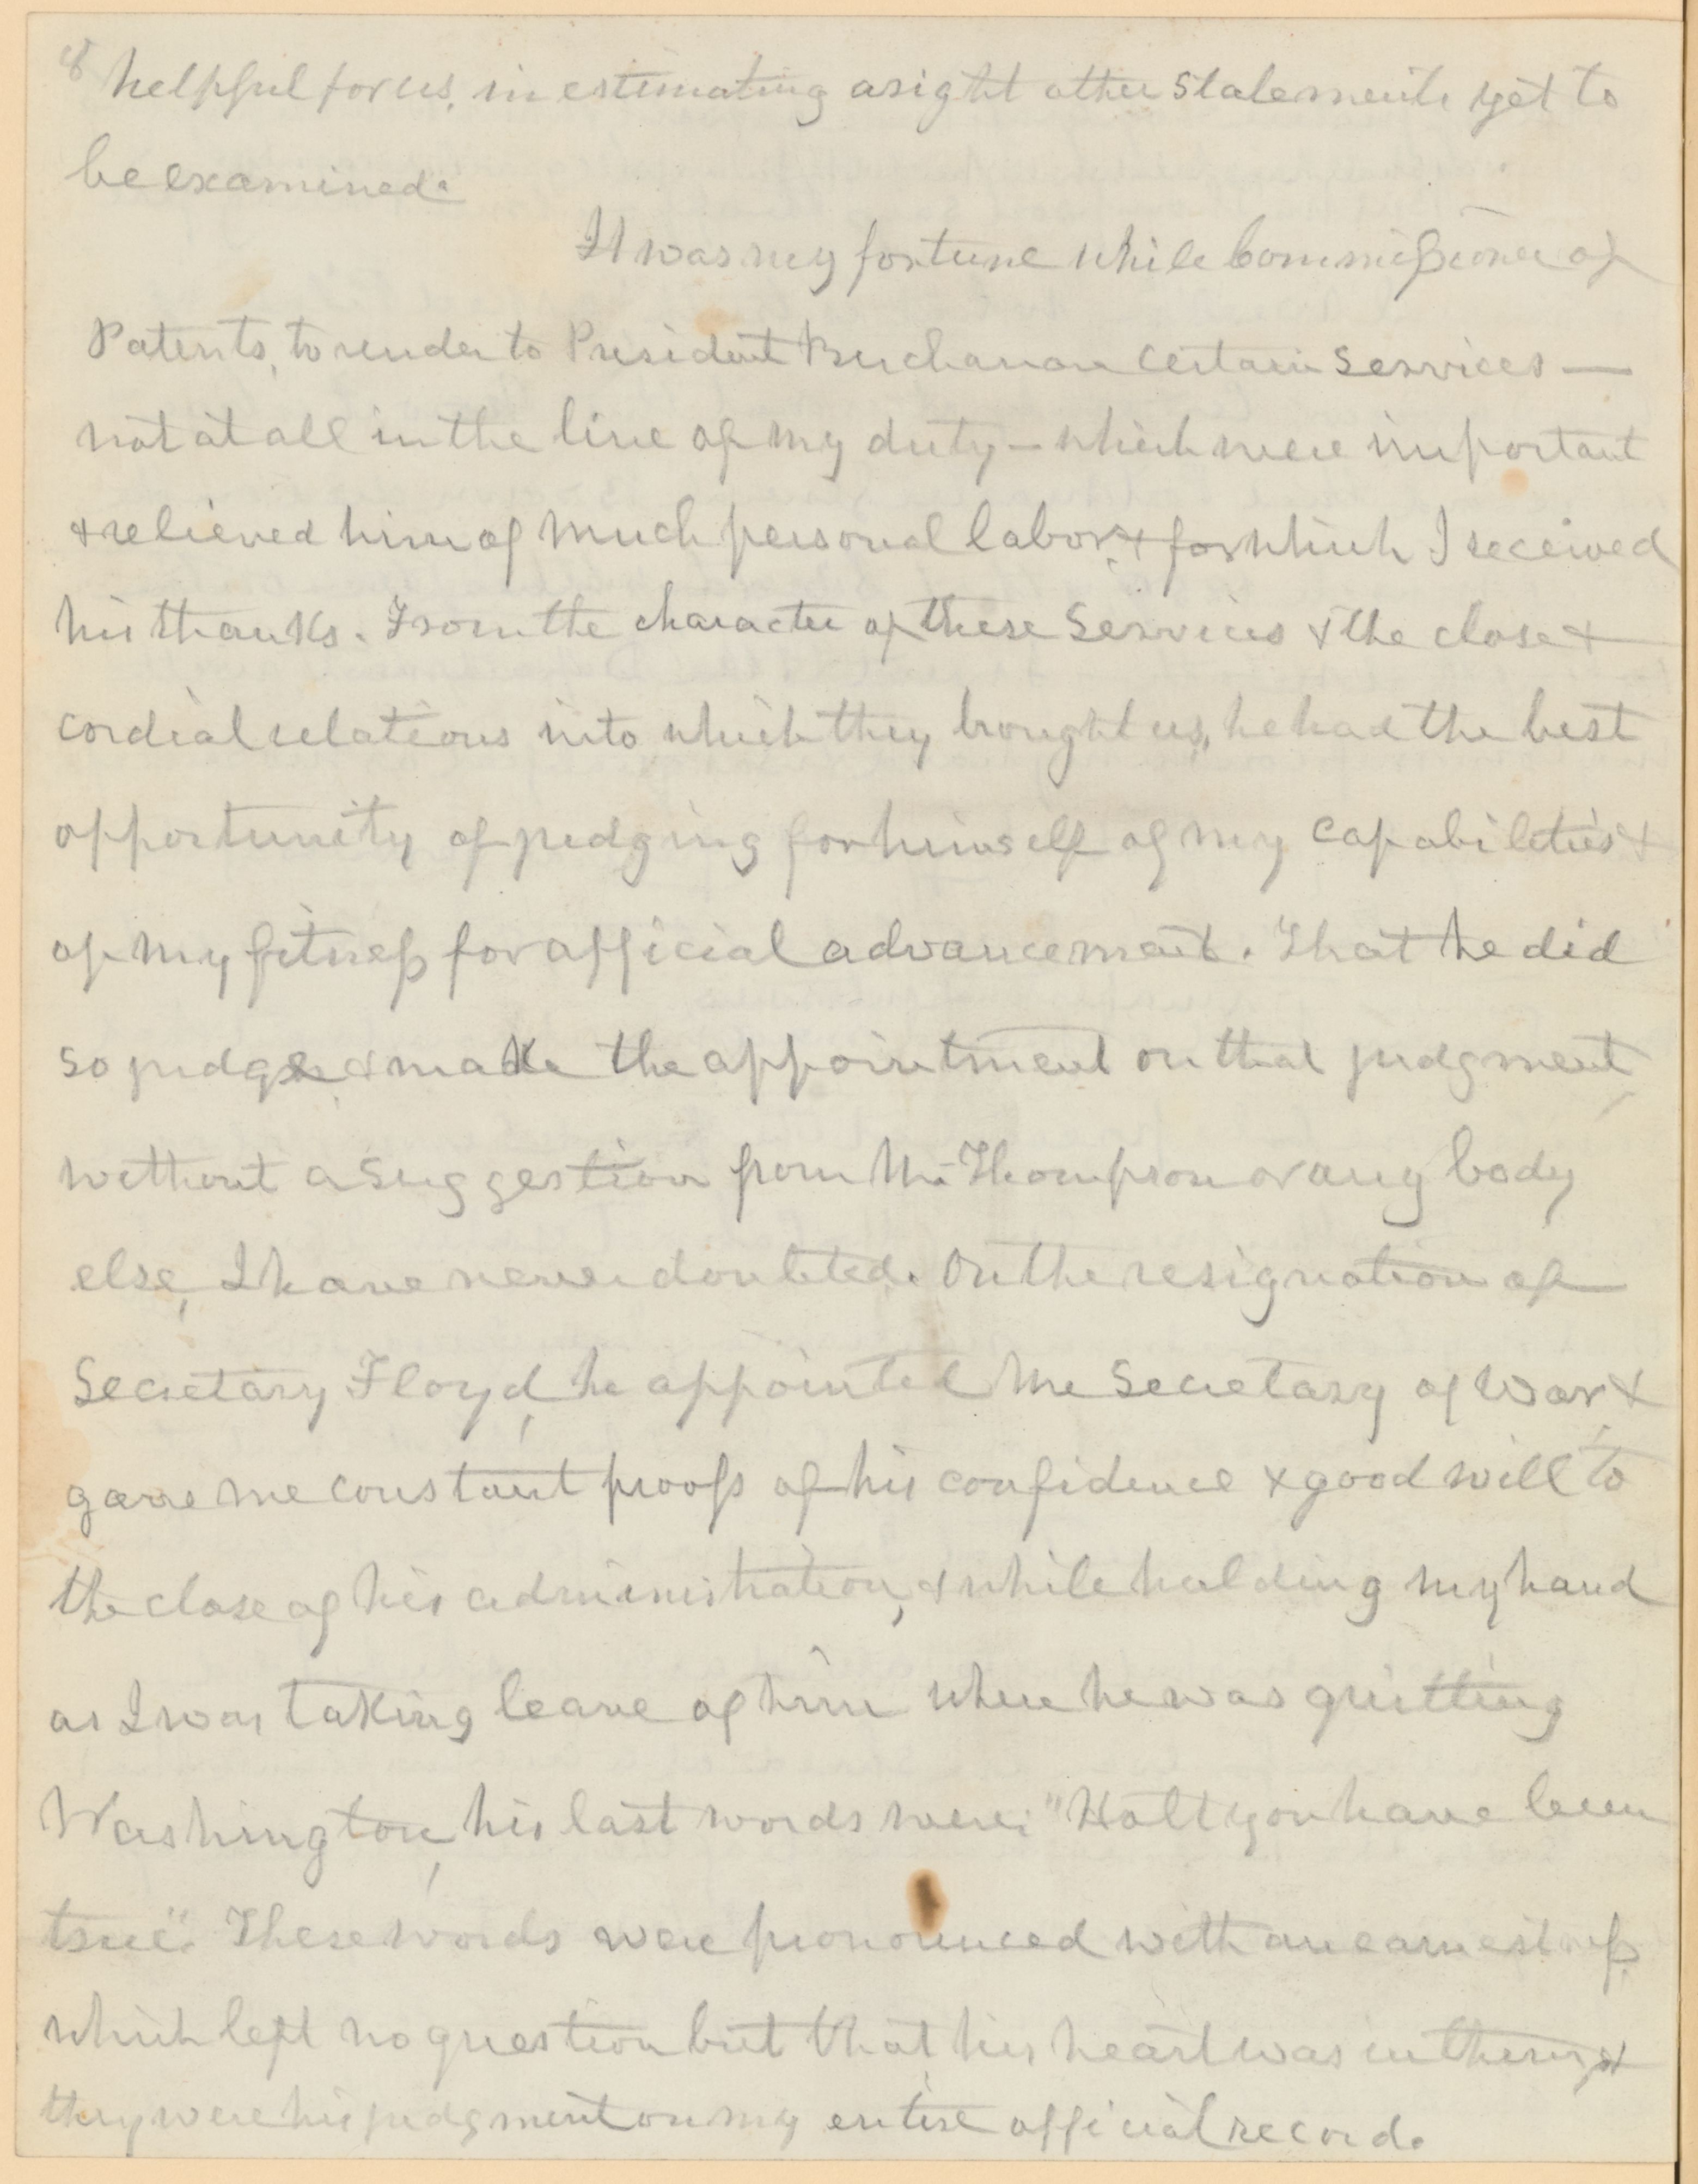 8 helpful for us, in estimating aright other statements yet to
be examined.
It was my fortune while Commissioner of
Patents, to render to President Buchanan certain services —
not at all in the line of my duty — which were important
& relieved him of much personal labor, & for which I received
his thanks. From the character of these services & the close &
cordial relations into which they brought us, he had the best
opportunity of judging for himself of my capabilities &
of my fitness for official advancement. That he did
so judge & make the appointment on that judgment,
without a suggestion from Mr. Thompson or any body
else, I have never doubted. On the resignation of
Secretary Floyd, he appointed me Secretary of War, &
gave me constant proofs of his confidence & good will to
the close of his administration, & while holding my hand
as I was taking leave of him when he was quitting
Washington, his last words were: "Holt you have been
true". These words were pronounced with an earnestness
which left no question but that his heart was in them, &
they were his judgment on my entire official record.